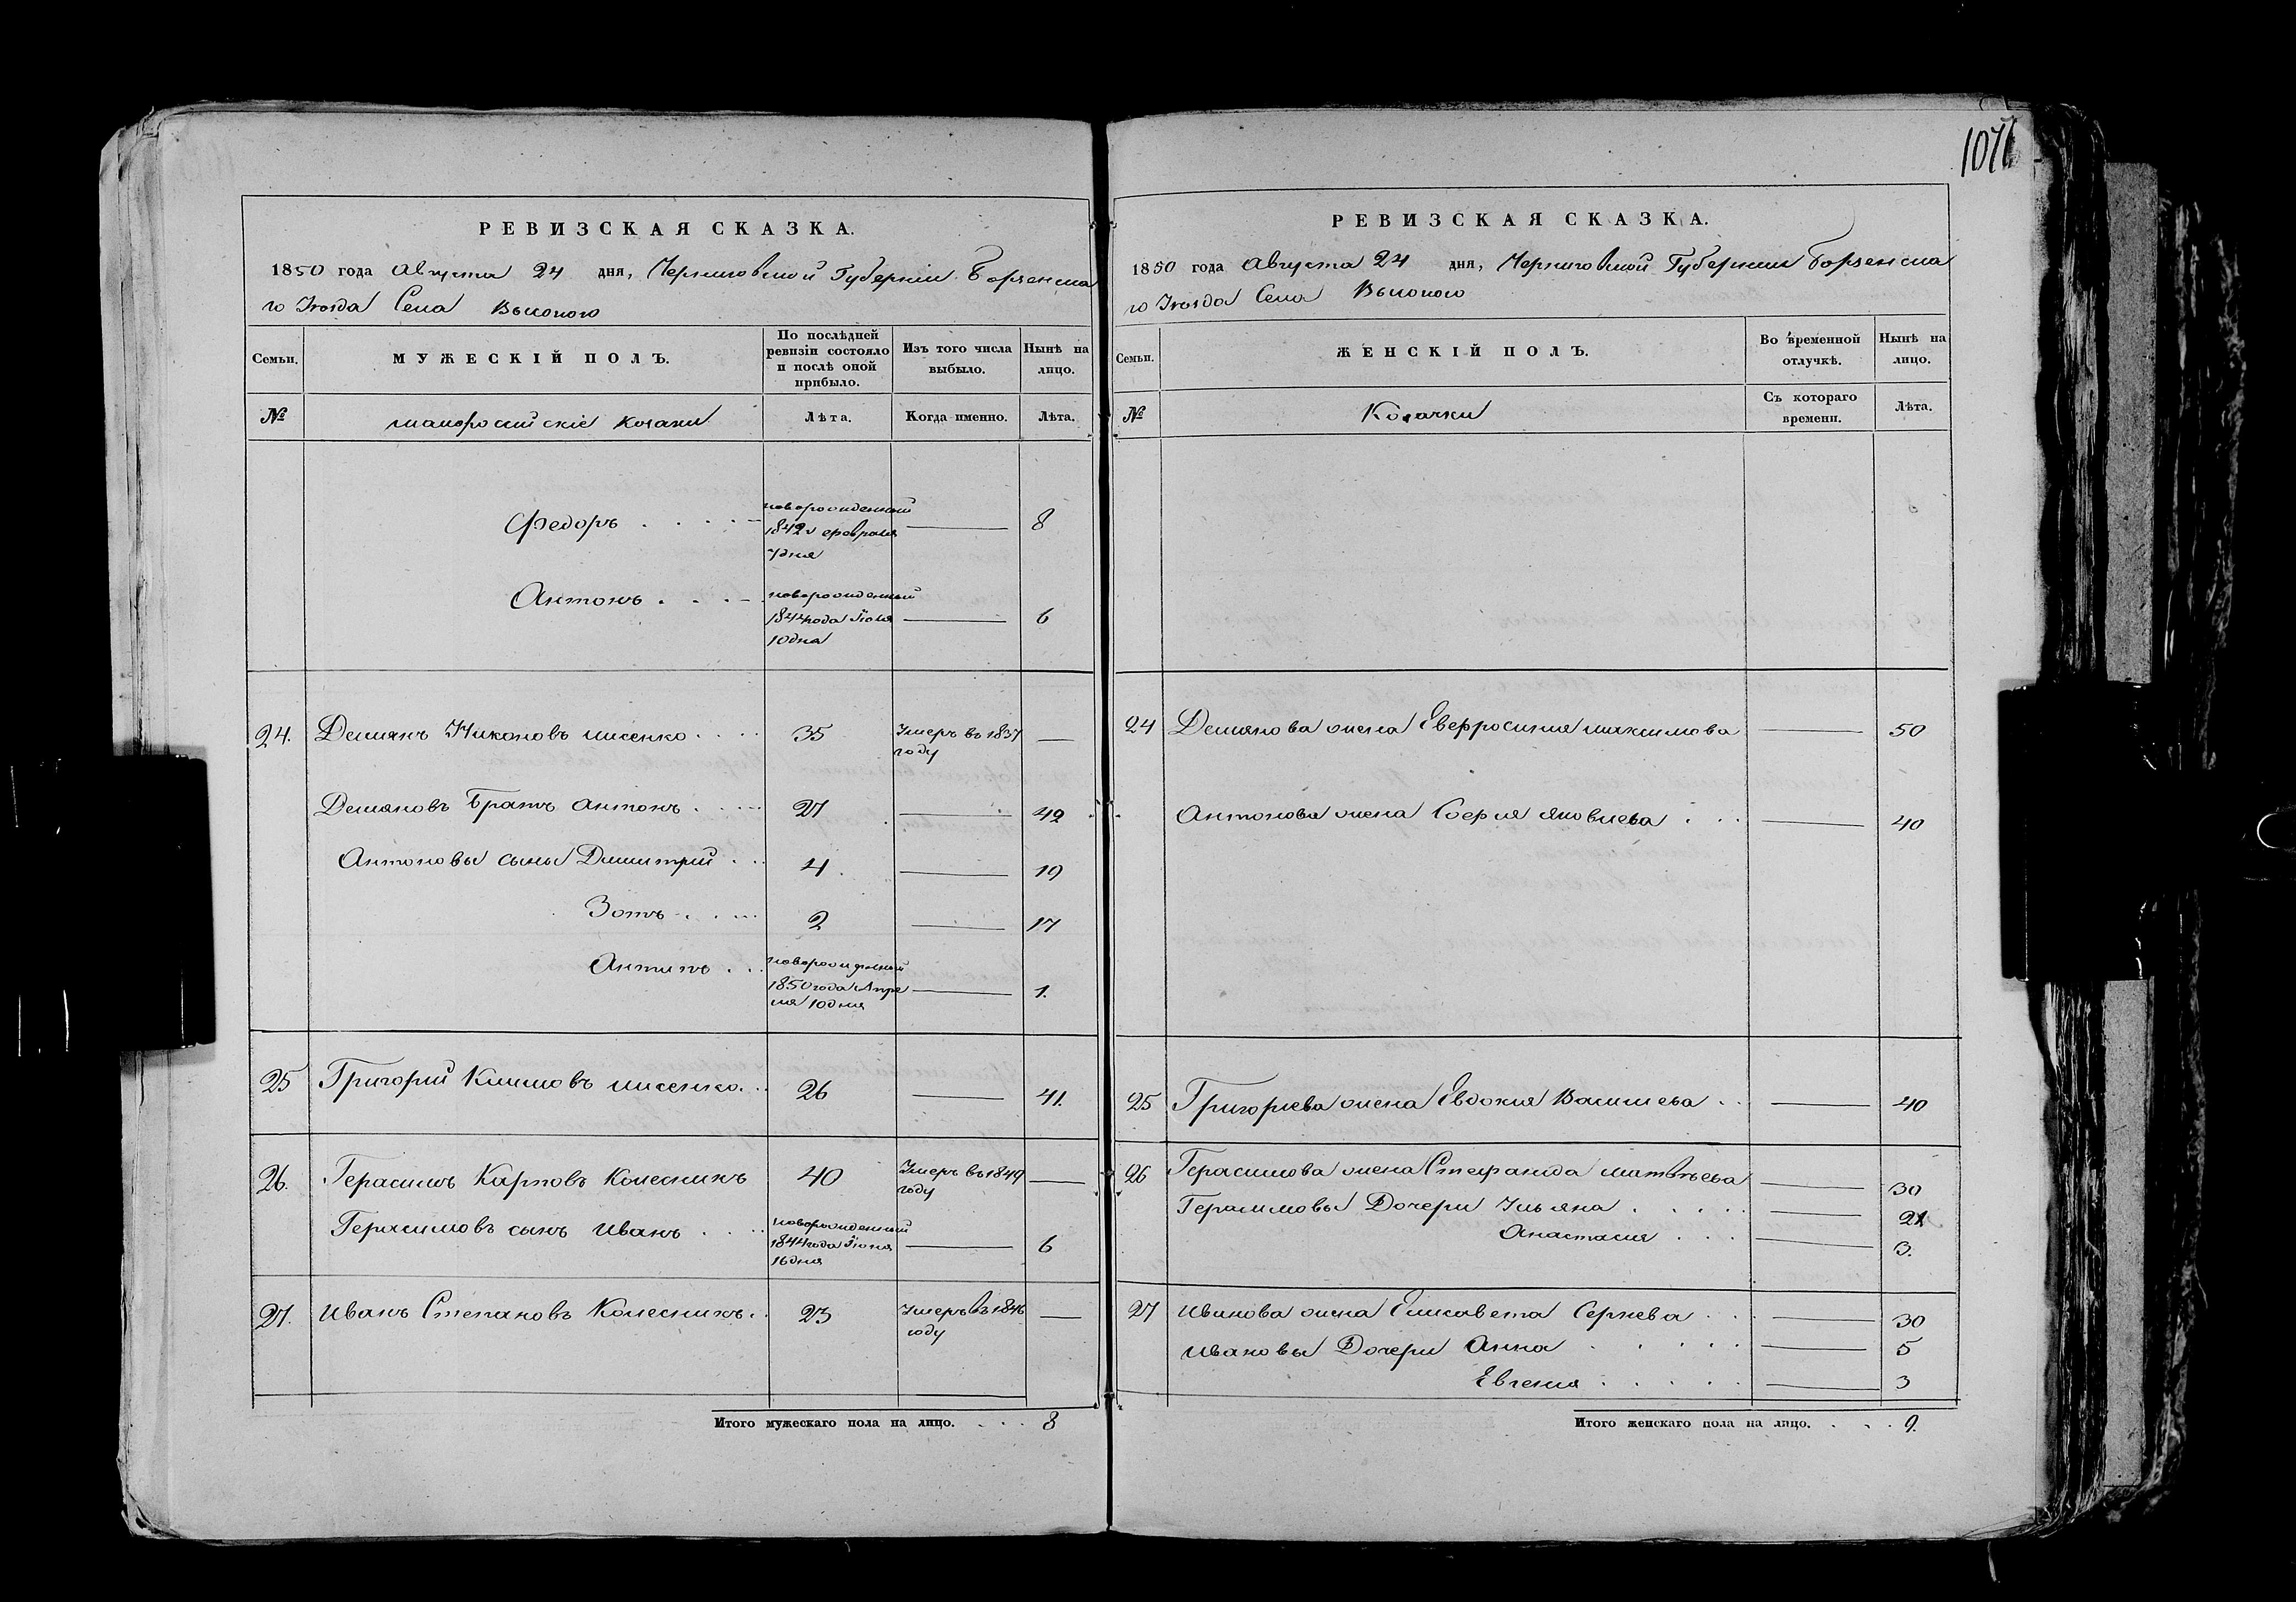 РЕВИЗСКАЯ СКАЗКА.
1850 года Августа 24 дня, Черниговской Губерніи Борзенска
го Уезда Села Высокого
Семьи. МУЖЕСКІЙ ПОЛЪ. По послѣдней ревизіи состояло и послѣ оной прибыло. Изъ того числа выбыло. Нынѣ на лицо.
№ малороссійскіе козаки Лѣта. Когда именно. Лѣта.
Федоръ новорожденный 1842 февраля 7 дня 8
Антонъ новорожденный 1844 года Іюля 10 дня 6
24. Демянъ Никоновъ Лисенко 35 Умеръ въ 1837 году
Демяновъ Братъ Антонъ 27 42
Антоновы сыны Димитрій 4 19
Зотъ 2 17
Антипъ новорожденный 1850 года Апреля 10 дня 1.
25 Григорий Климовъ Лисенко 26 41.
26. Герасимъ Карповъ Колесникъ 40 Умеръ въ 1849 году
Герасимовъ сынъ Иванъ новорожденный 1844 года Іюня 16 дня 6
27. Иванъ Степановъ Колесникъ 23 Умеръ въ 1846 году
Итого мужескаго пола на лицо. 8
1076
РЕВИЗСКАЯ СКАЗКА.
1850 года Августа 24 дня, Черниговской Губернии Борзенска
го Уезда Села Высокого
Семьи. ЖЕНСКІЙ ПОЛЪ. Во временной отлучкѣ. Нынѣ на лицо.
№ Козачки Съ котораго времени. Лѣта.
24 Демянова жена Евфросиния Максимова 50
Антонова жена София Яковлева 40
25 Григориева жена Евдокия Васильева 40
26 Герасимова жена Стефанида Матвѣева 30
Герасимовы Дочери Ульяна 21
Анастасия 3.
27 Иванова жена Елисавета Сергиева 30
Ивановы Дочери Анна 5
Евгения 3
Итого женскаго пола на лицо. 9.